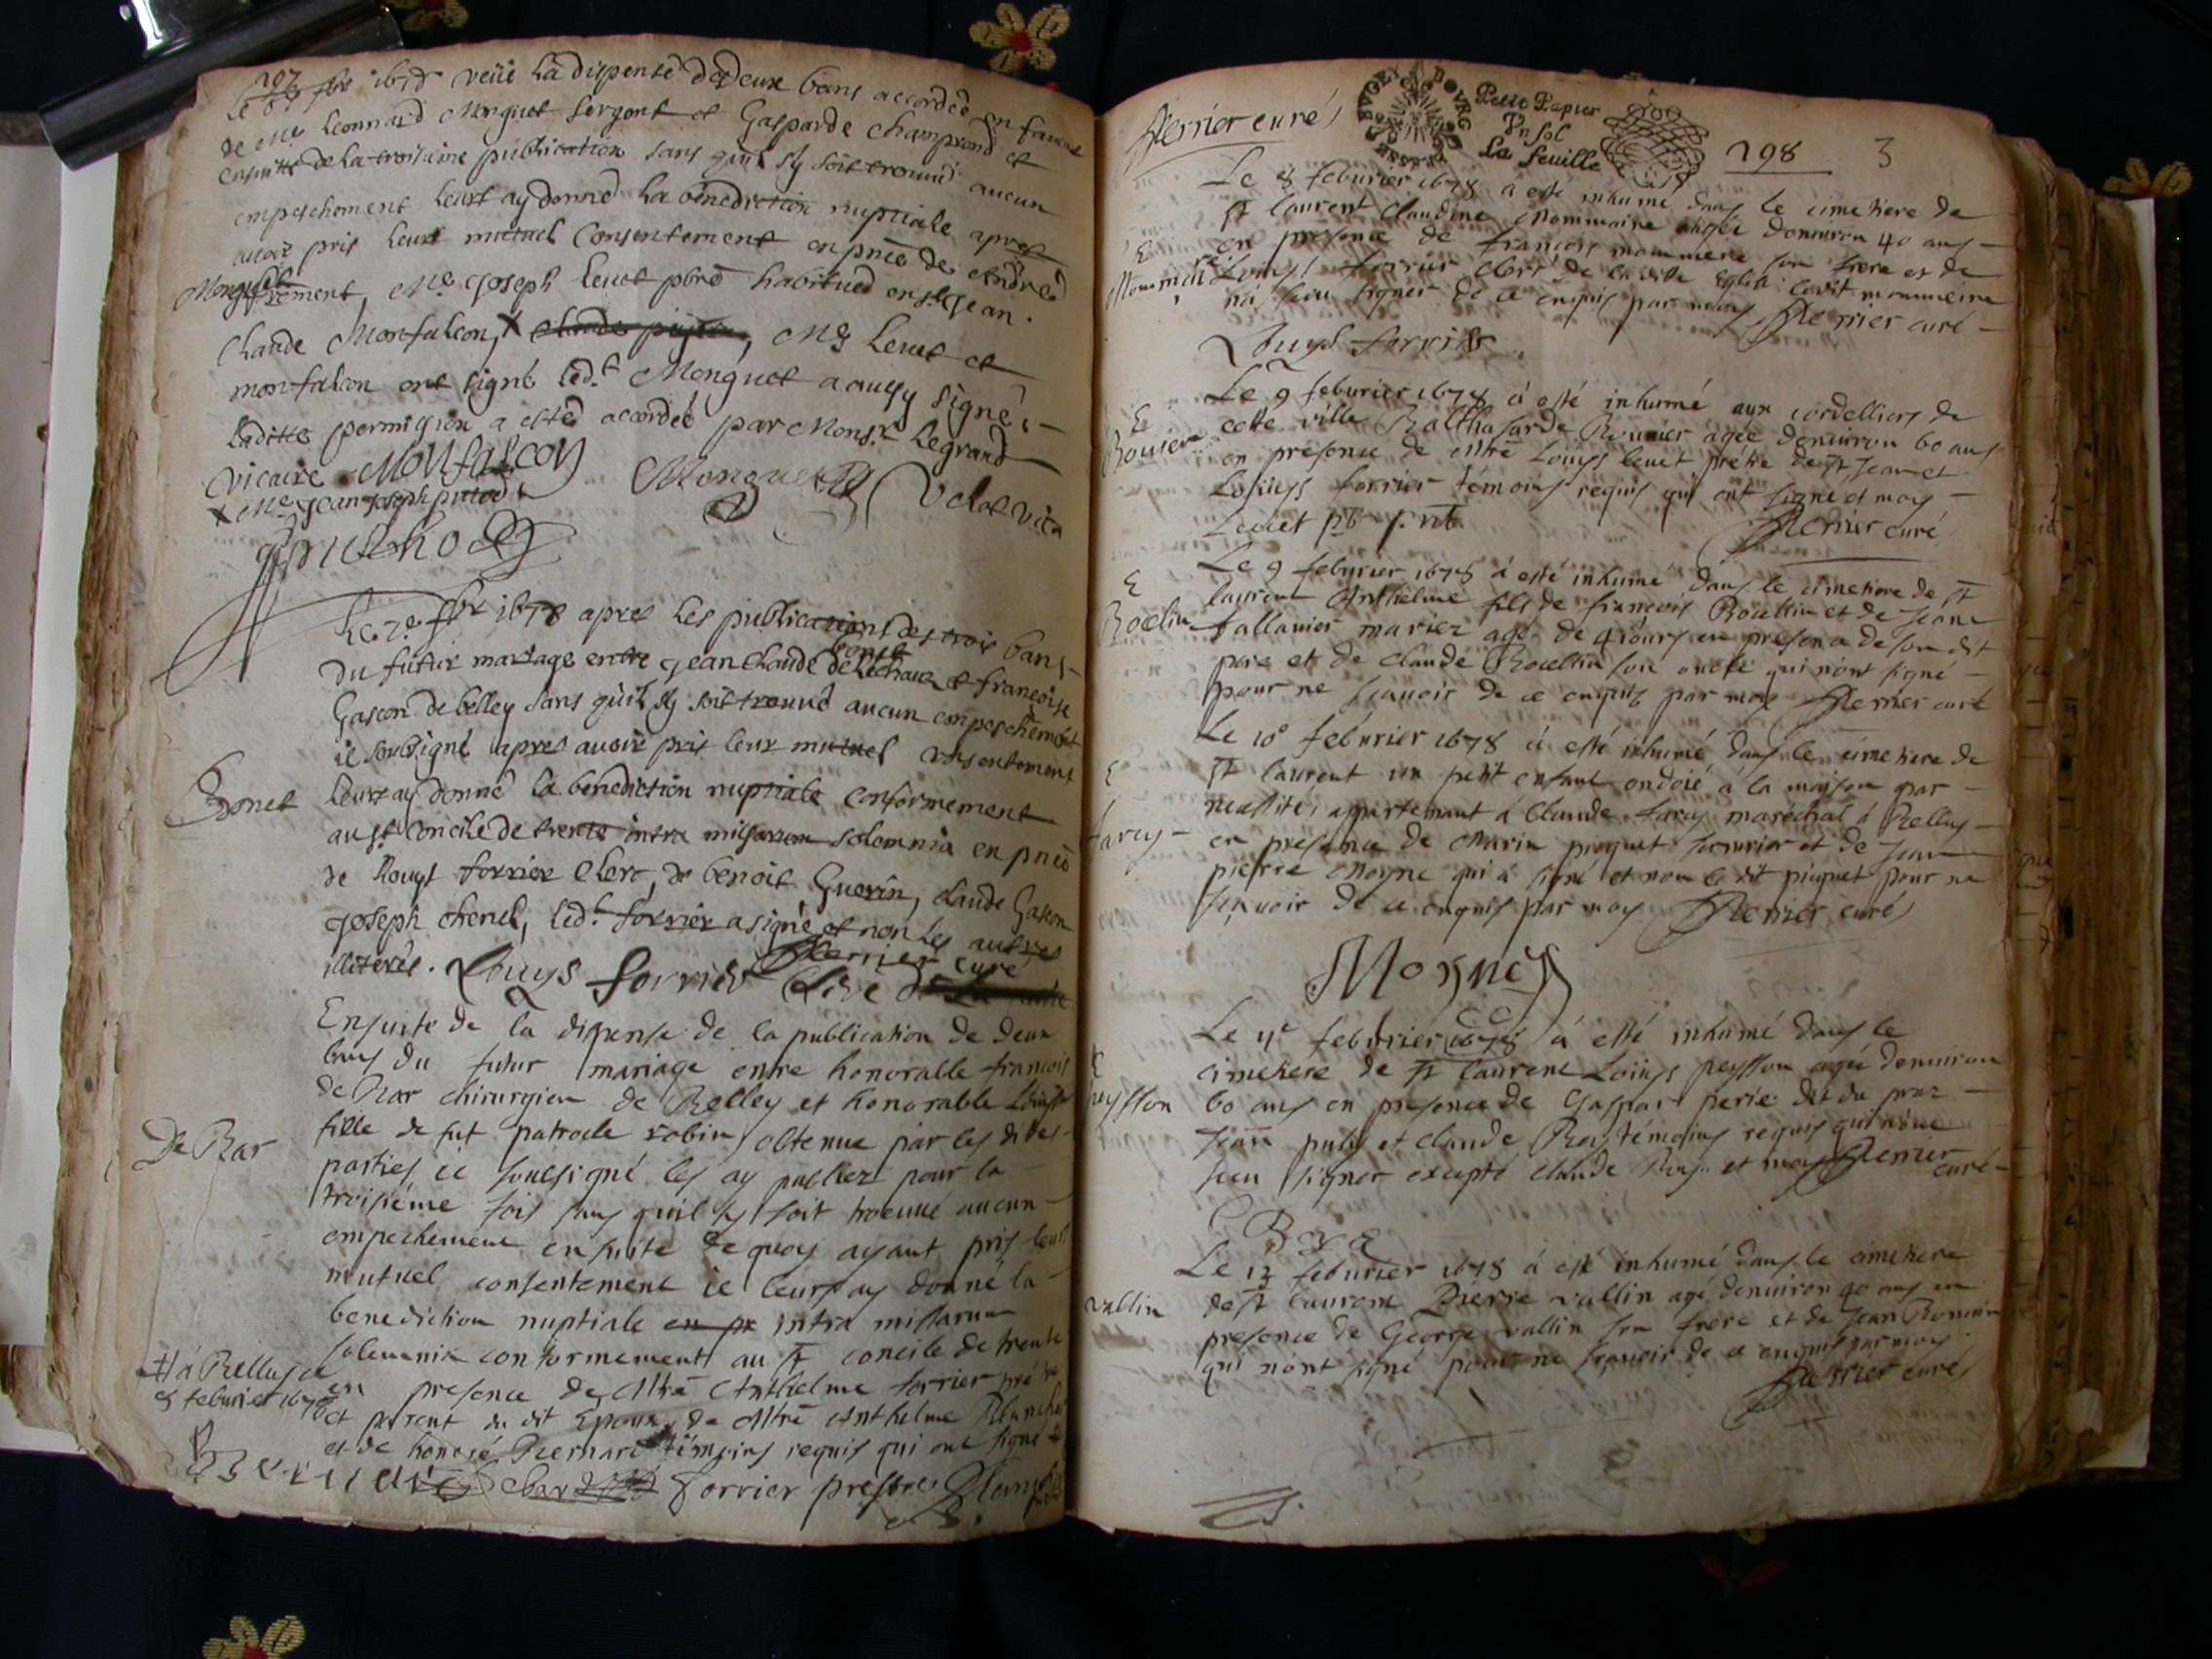 297
Le febr 1678 veüe la dispense de deux bans accordée en faueur
de Me Leonnard Monguet sergent et Gasparde Champrond et
ensuitte de la troisieme publication sans quil sy soit trouué aucun
empeschement leurs ay donné la benediction nuptiale apres
auoir pris leurs mutuel consentement en pnce de André
Monguet
Me Joseph Leuet pbre habitué en st Jean.
Claude Monfalcon, X Me Leuet et
monfalcon ont signé led.t Monguet a aussy signé,
laditte permission a estéd accordée par Mons.r Legrand
vicaire Monfalcon Monguet
X Me Jean joseph
Le 7e febr 1678 apres les publications des trois bans
du futur mariage entre Jean Claude françoise
Gascon de belley sans quil sy soit trouué aucun empeschement
ie soubsigné apres auoir pris leur mutuel consentement
Bonet
leurs ay donné la benediction nuptiale conformement
au st concile de trente intra missarum solemnia en pnce
de Louys forrier clerc, de benoit Guerin, claude Gascon
joseph chenel, led.t forrier a signé et non les autres
illiterés. Perrier curé
Louys forrier Clerc
Ensuite de la dispense de la publication de deux
bans du futur mariage entre honorable francois
de Bar chirurgien de Belley et honorable Louise
De Bar
fille de fut patrocle robin obtenue par les dittes
parties ie soubsigné les ay publiez pour la
troisiéme fois sans quil sy soit trouuué aucun
empechement ensuite de quoy ayant pris leurs
mutuel consentement ie leurs ay donné la
benediction nuptiale en pr intra missarum
solemnia conformement au st concile de trente
# á Belley ce
8 feburier 1678
en presence de Mtre Anthelme forrier prétre
et parent du dit Epoux, de Mtre Anthelme Planche
et de honoré Bernard témoins requis qui ont signé
Bernard Debar forrier prestre
Perrier curé
BVGEY BOVRG BRESSE
Petit Papier
Vn sol
La feuille
298 3
Le 8 feburier 1678 a esté inhumé dans le cimetiere de
st laurent Claudine Mommaire agée denuiron 40 ans
en presence de francois mommaire son frere et de
Louys forrier clerc de la ditte Eglise. Ledit mommeire
na sceu signer de ce enquis par moy Perrier curé
Louys forrier
Le 9 feburier 1678 á esté inhumé aux cordelliers de
Rouier
cette ville Balthasarde Rouuier agée denuiron 60 ans
en présence de Mtre Louys leuet prétre de st Jean et
Loüiys forrier témoins requis qui ont signé et moy
Leuet Perrier curé
Le 9 feburier 1678 á esté inhumé dans le cimetiere de st
laurent Anthelme fils de françois Roellin et de Jeane
Roelin
tallanier mariez agé de 4 iours en presence de son dit
pere et de Claude Roellin son oncle qui nont signé
pour ne scauoir de ce enquis par moy Perrier curé
Le 10e feburier 1678 á esté inhumé dans le cimetiere de
st laurent un petit enfant ondoié á la maison par
necessité, appartenant á Claude farcy maréchal á Belley
farcy
en presence de Marin piuquet serrurier et de Jean
pierre Moyne qui á signé et non le dit piuquet pour ne
scauoir de ce enquis par moy Perrier curé
Moyne
Le 11e feburier 1678 á esté inhumé dans le
cimetiere de st laurent Loüiys peysson agé denuiron
peysson
60 ans en presence de Gaspar perie dit du praz
Jean puby et claude Roy témoins requis qui nont
sceu signer excepté Claude Roy et moy Perrier
curé
Le 12 feburier 1678 á esté inhumé dans le cimetiere
vallin
de st laurent Pierre vallin agé denuiron 40 ans en
presence de George vallin son frere et de Jean Romain
qui n'ont signé pour ne scauoir de ce enquis par moy
Perrier curé